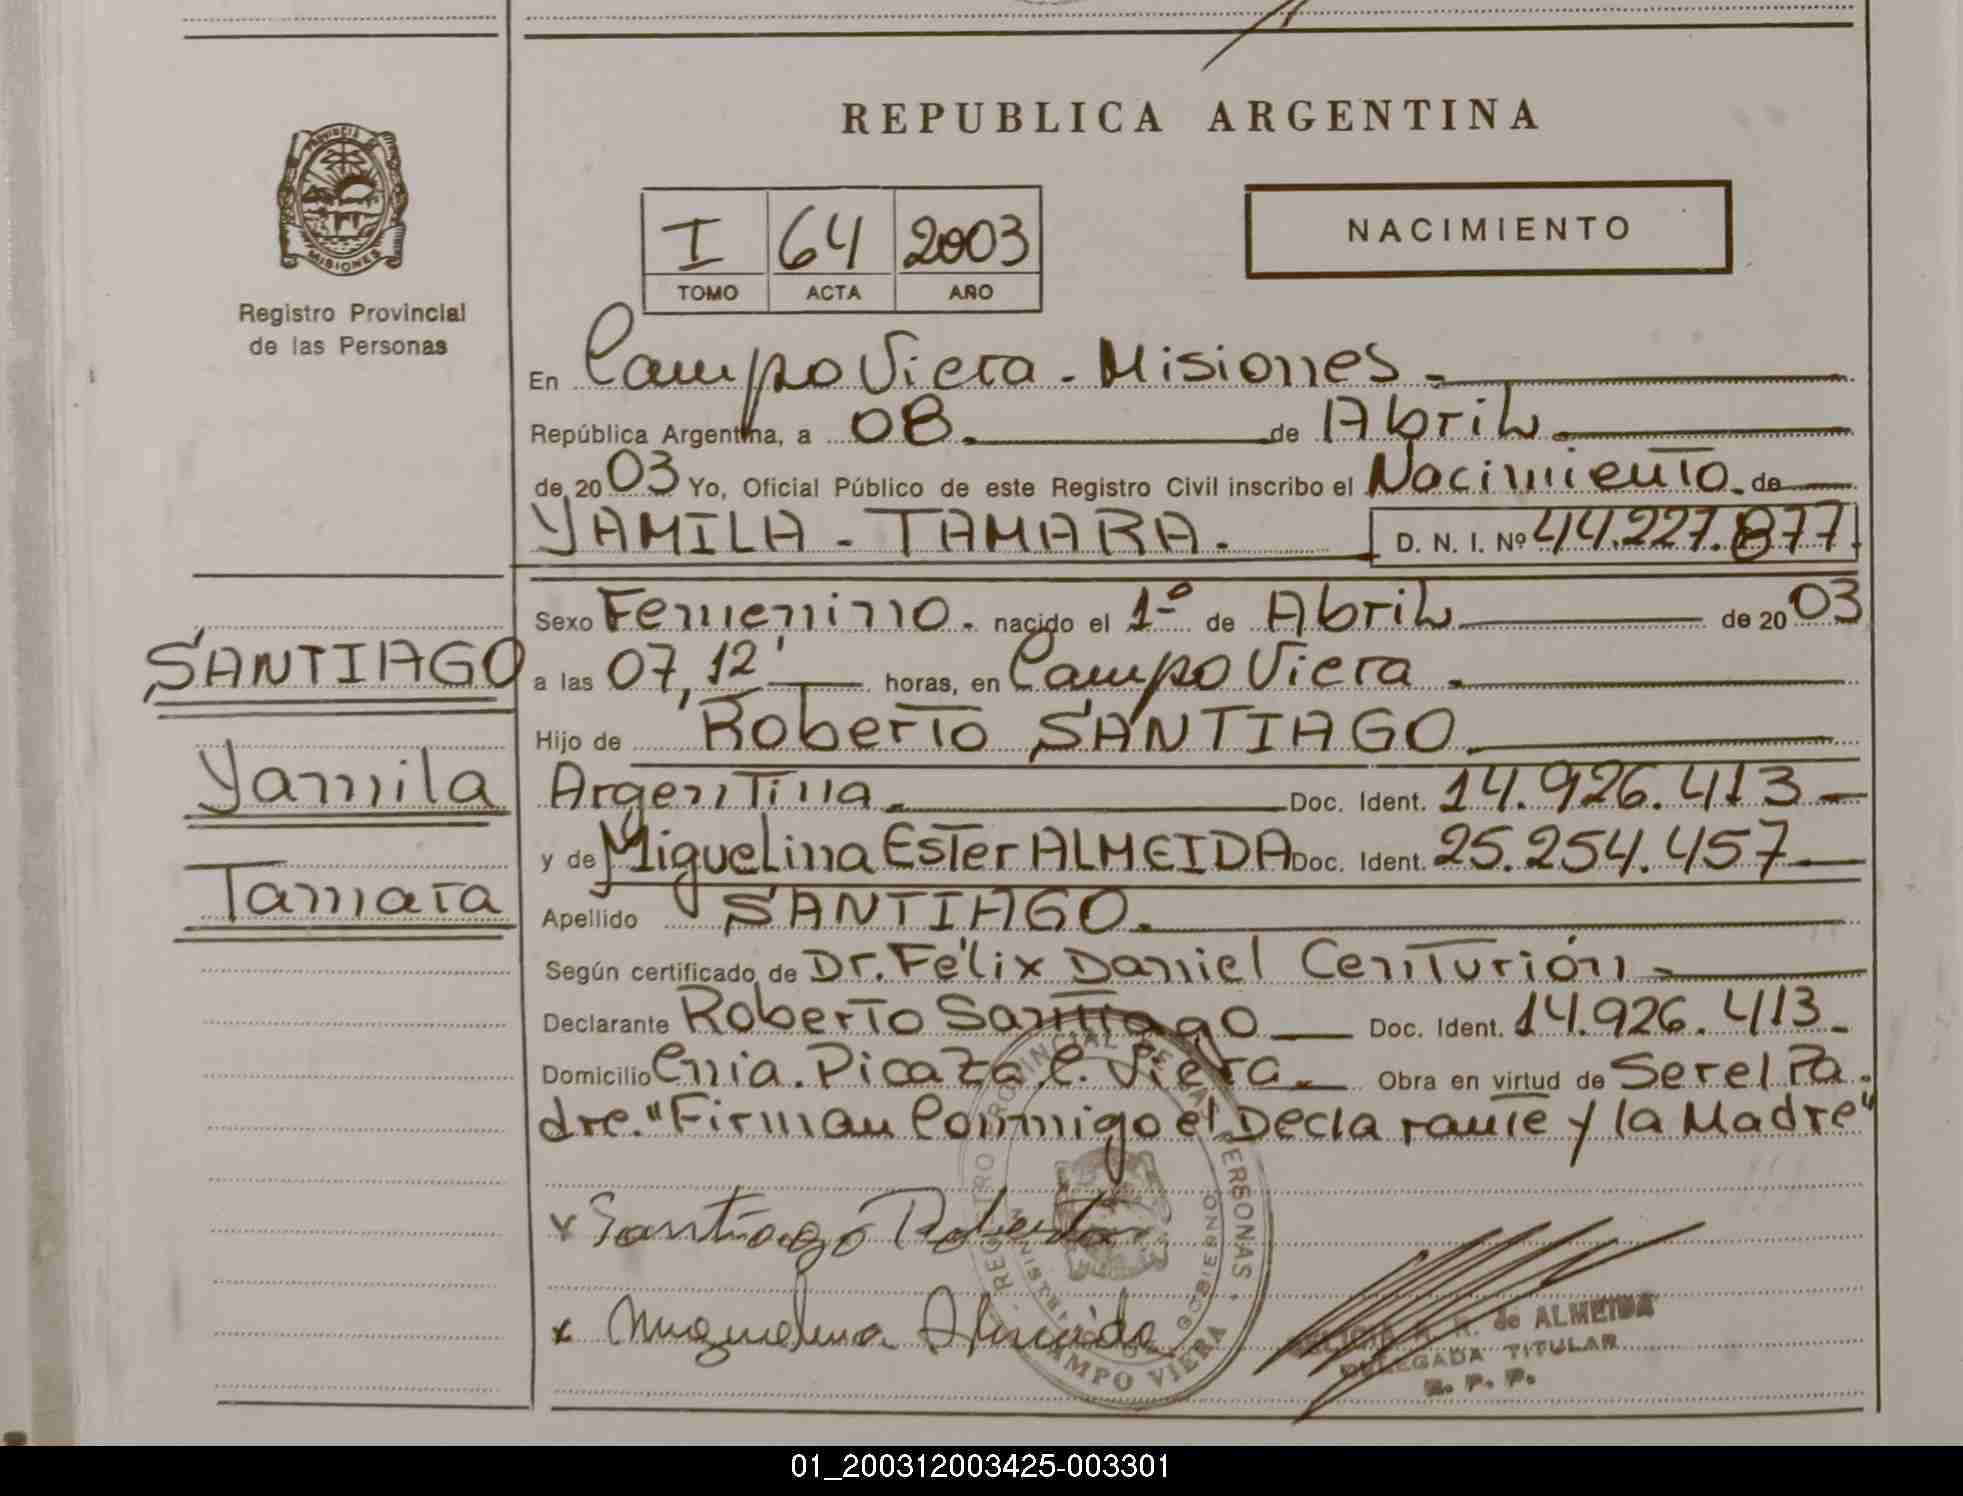 REPUBLICA ARGENTINA
PROVINCIA DE
MISIONES
Registro Provincial
de las Personas
I 64 2003
TOMO ACTA AÑO
NACIMIENTO
En Campo Viera - Misiones -
República Argentina, a 08. de Abril
de 2003 Yo, Oficial Público de este Registro Civil inscribo el Nacimiento de
YAMILA - TAMARA. D. N. I. Nº 44.227.877
Sexo Femenino. nacido el 1º de Abril de 2003
SANTIAGO
a las 07,12' horas, en Campo Viera.
Hijo de Roberto SANTIAGO.
Yamila
Argentina. Doc. Ident. 14.926.413
y de Miguelina Ester ALMEIDA Doc. Ident. 25.254.457
Tamara
Apellido SANTIAGO.
Según certificado de Dr. Félix Daniel Centurión -
Declarante Roberto Santiago Doc. Ident. 14.926.413
Domicilio Cnia. Picaza. C. Viera. Obra en virtud de Ser el Pa-
dre. "Firman Conmigo el Declarante y la Madre"
REGISTRO PROVINCIAL DE LAS PERSONAS
CAMPO VIERA
x Santiago Roberto
x Miguelina Almeida
de ALMEIDA
DELEGADA TITULAR
R. P. P.
01_200312003425-003301